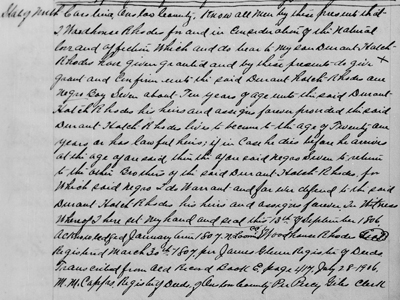 State of North Carolina Onslow County. Know all Men by these present that
I Woodhouse Rhodes for and in Consideration of the Natural
love and affection Which and do bear to My son Durant Hatch
Rhodes have given granted and by these presents to give +
grant and Confirm unto the said Durant Hatch Rhodes one
Negro Boy Seven about Ten years of age unto the said Durant
Hatch Rhodes his heirs and assigns forever provided the said
Durant Hatch Rhodes lives to become to the age of Twenty one
years or has lawful heirs; if in Case he dies before he arrives
at the age afore said then the afore said Negro Seven to return
to the other Brothers of the said Durant Hatch Rhodes. for
Which said Negro I do Warrant and forever defend to the said
Durant Hatch Rhodes his heirs and assigns forever. In Witness
Where of I here set My hand and seal this 13th of September 1806
Acknowledged January term 1807. Woodhouse Rhodes Seal
Registered March 30th 1807 per James Glenn Register of Deeds
Transcribed from old Record Book page 114 July 28-1906.
Register of Deeds, Onslow County Per Percy Giles Clerk